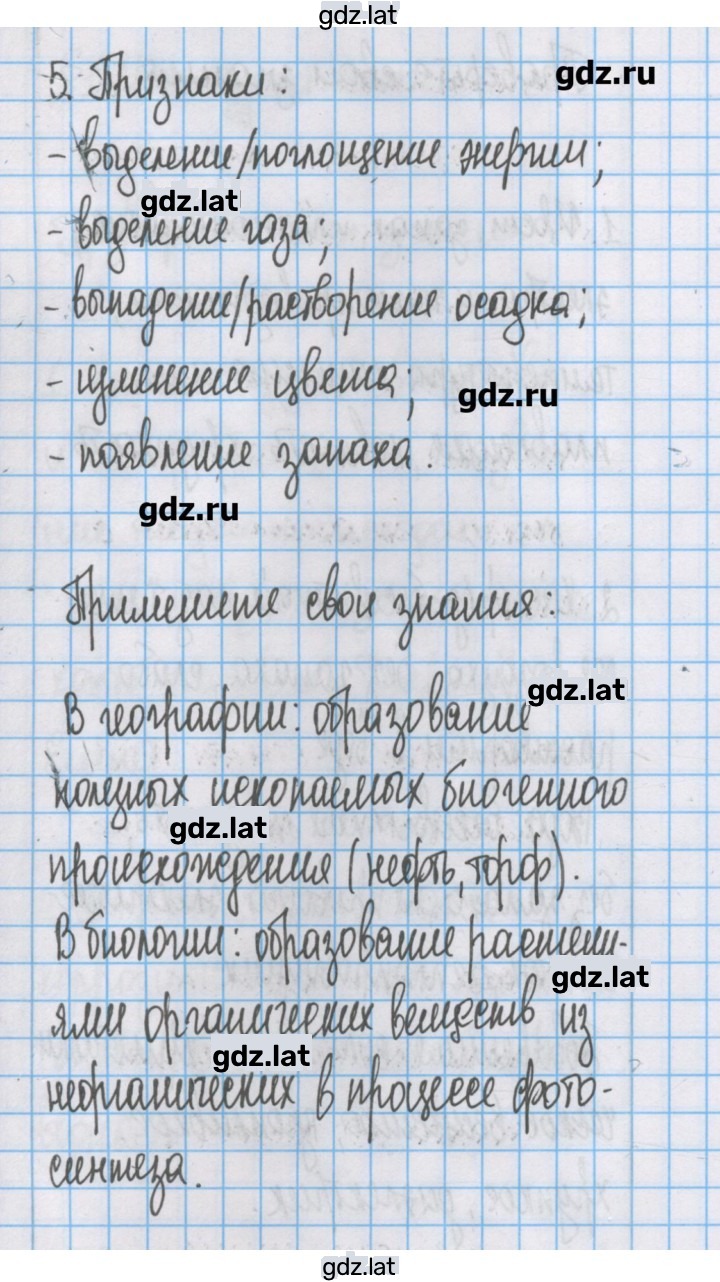 gdz.lat
5. Признаки:
gdz.ru
- выделение/поглощение энергии;
gdz.lat
- выделение газа;
- выпадение/растворение осадка;
- изменение цвета;
gdz.ru
- появление запаха.
gdz.ru
Примените свои знания:
gdz.lat
В географии: образование
полезных ископаемых биогенного
gdz.lat
происхождения (нефть, торф).
В биологии: образование растени-
gdz.lat
ями органических веществ из
gdz.lat
неорганических в процессе фото-
синтеза.
gdz.lat